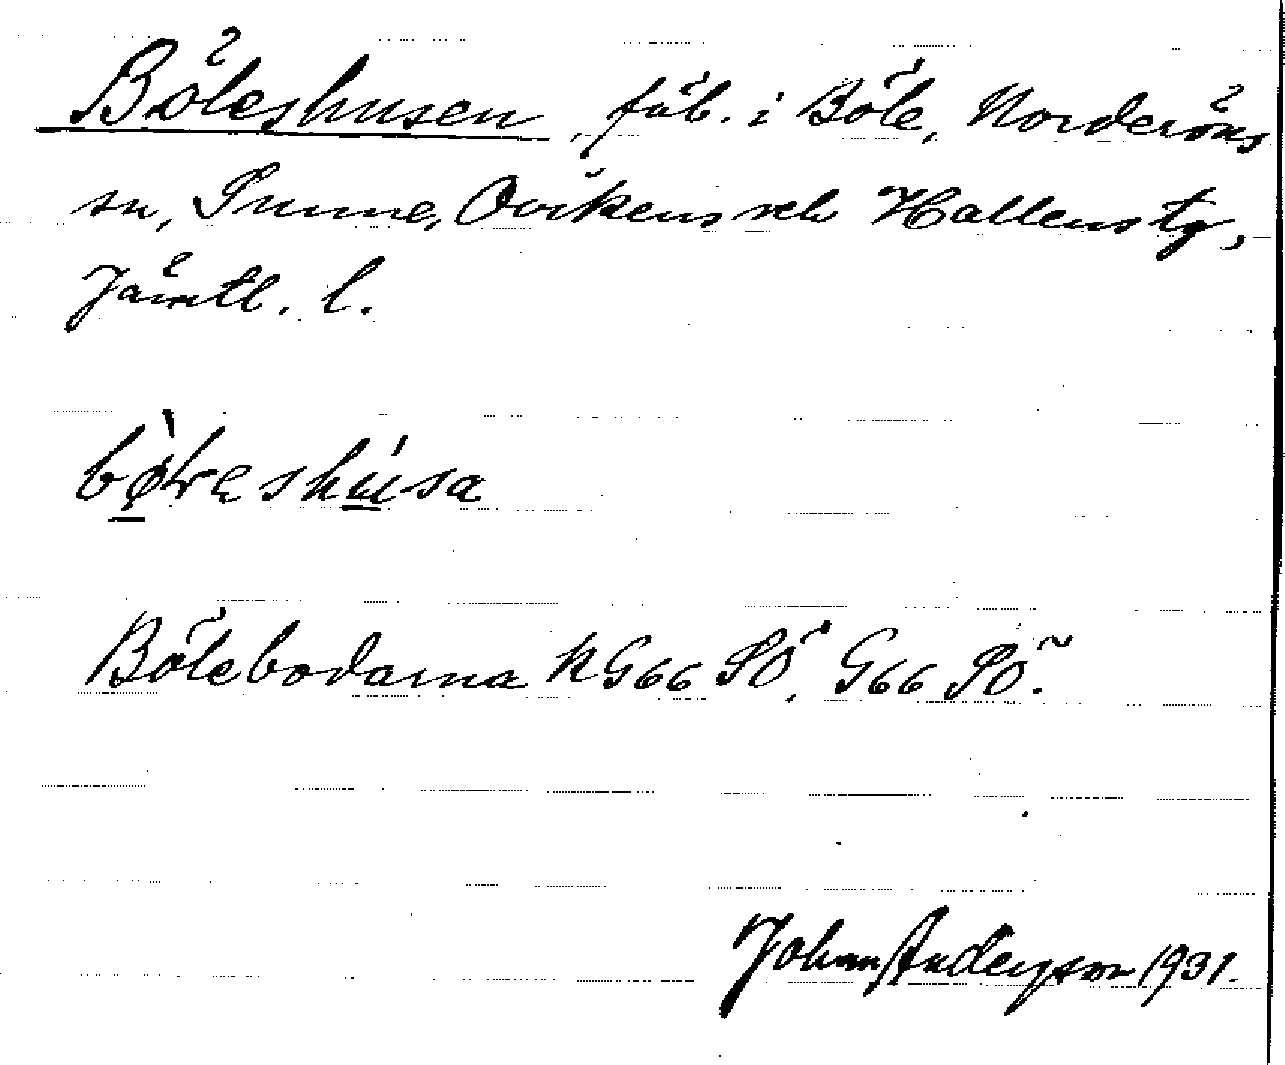 Böleshusen, fäb. i Böle, Norderöns
sn, Sunne, Ovikens och Hallens tg,
Jämtl. l.
Bölebodarna KG66 SÖ, G66 SÖ.
Johan Anderson 1931.